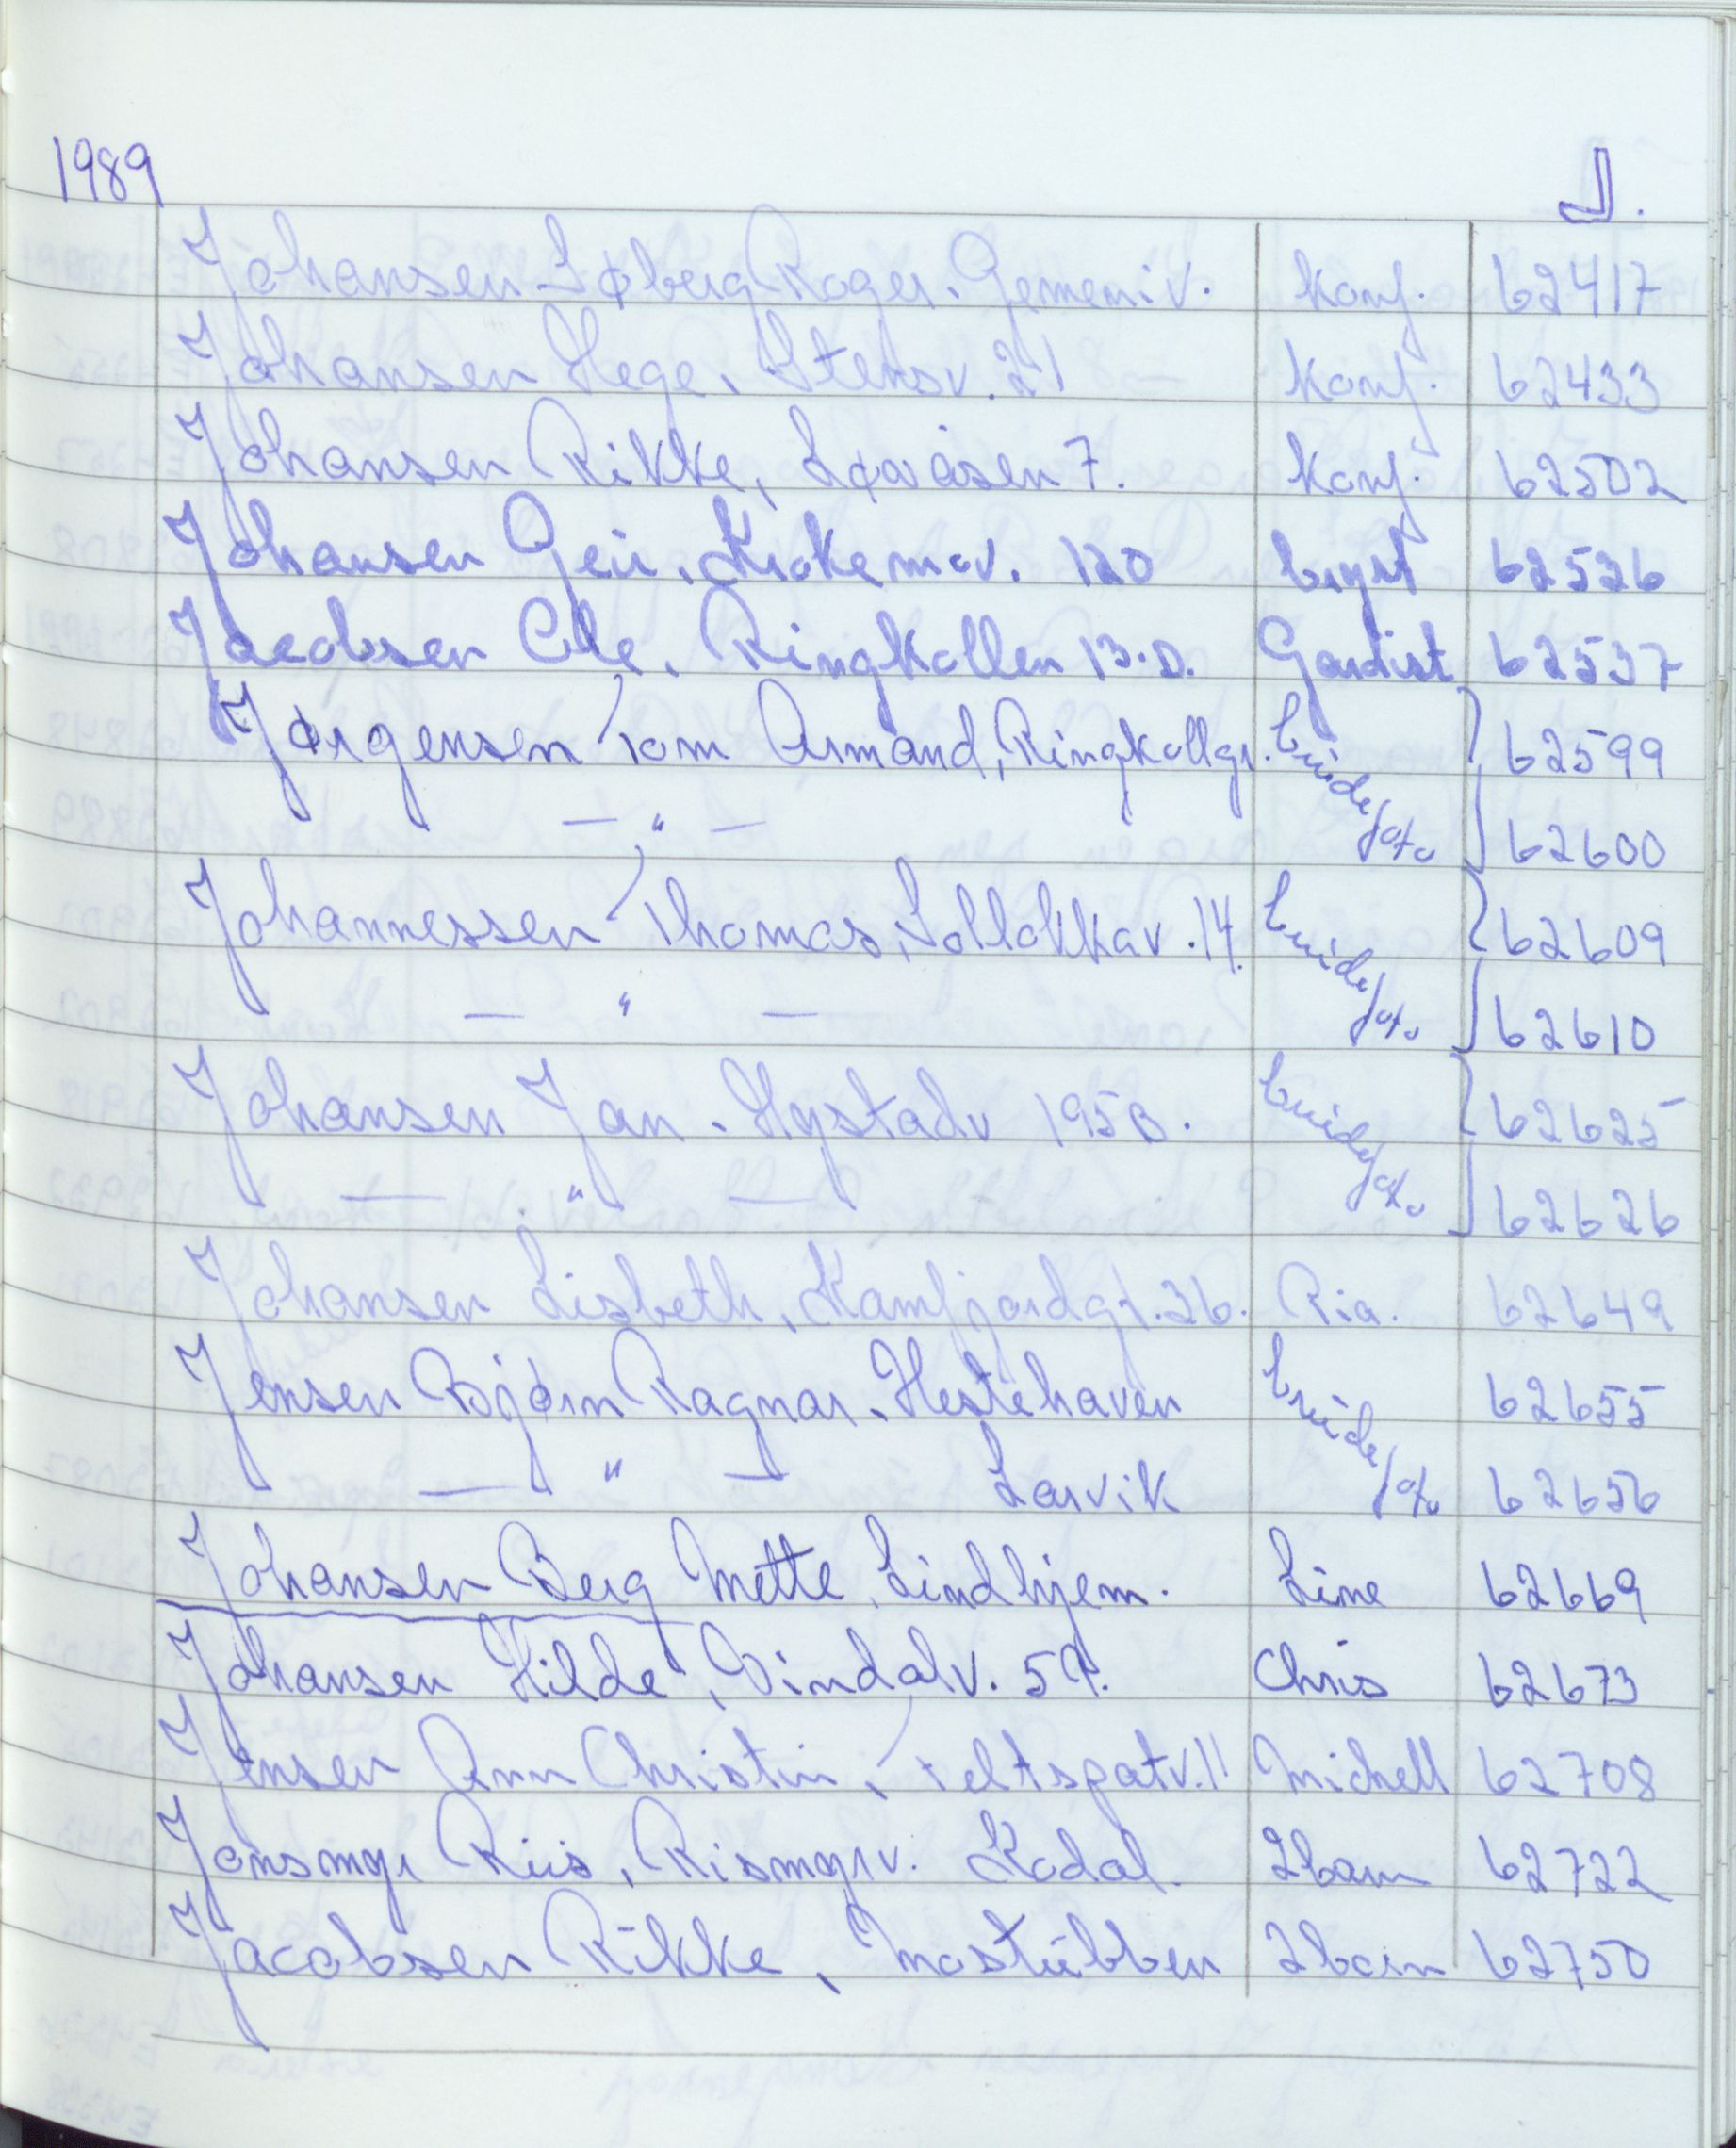 1989 J.
Johansen Søberg Roger. Gemeniv. Konf. 62417
Johansen Hege, Stensv. 21 Konf. 62433
Johansen Rikke, Løvåsen 7. Konf. 62502
Johansen Geir. Krokemov. 120 bryst 62526
Jacobsen Ole. Ringkollen 13.D. Gardist 62537
Jørgensen Tom Armand, Ringkollgr. brude/foto 62599
— " — 62600
Johannessen Thomas, Solløkkav. 14. brude/foto 62609
— " — 62610
Johansen Jan. Hystadv 195B. brude/foto 62625
— " — 62626
Johansen Lisbeth, Kamfjordgt. 26. Ria. 62649
Jensen Bjørn Ragnar. Hestehaven brude/foto 62655
— " — Larvik 62656
Johansen Berg Mette, Lindhjem. Line 62669
Johansen Hilde, Vindalv. 59. Chris 62673
Jensen Ann Christin, Feltspatv. 11 Michell 62708
Jonsmyr Riis, Rismyrv. Kodal. 2barn 62722
Jacobsen Rikke, Mostubben 2barn 62750